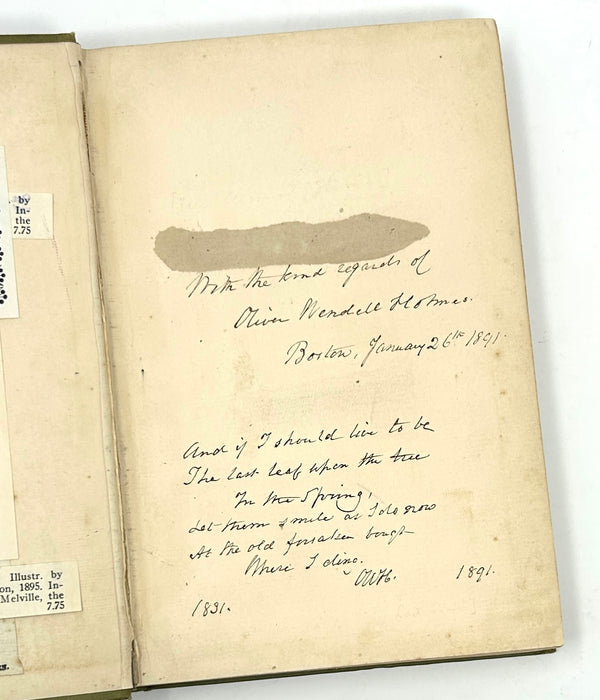 by
In-
the
7.75
With the kind regards of
Oliver Wendell Holmes.
Boston, January 26th 1891.
And if I should live to be
The last leaf upon the tree
In the Spring,
Let them smile as I do now
At the old forsaken bough
Where I cling.
OWH.
1831.
1891.
Illustr. by
on, 1895. In-
Melville, the
7.75